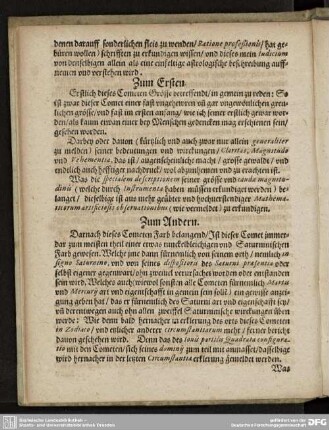 denen darauff sonderlichen fleis zu wenden / Ratione professionis / hat ge-
büren wollen / schrifften zu erkundigen wissen / und dieses mein Iudicium
von denselbigen allein als eine einfeltige astrologische beschreibung auff-
nemen und verstehen wird.
Zum Ersten
Erstlich dieses Cometen Grösse betreffend / in gemein zu reden: So
ist zwar dieser Comet einer fast ungehewren und gar ungewönlichen grew-
lichen grösse / und fast im ersten anfang / wie ich zuvor schon gewar wor-
den / als kaum etwan einer bey Menschen gedencken mag erschienen sein /
gesehen worden.
Darbey oder davon (kürtzlich und auch zwar nur allein generaliter
zu melden) seiner bedeutung und wirckungen / Claritas, Magnitudo
und Vehementia, das ist / augenscheinliche macht / grösse gewald / und
endlich auch hefftiger nachdruck / wol abzunemen und zu erachten ist.
Was die specialem descriptionem seiner grösse und caudæ magnitu-
dinis (welche durch Instrumenta haben müssen erkundiget werden) be-
langet / dieselbige ist aus mehr geübter und hocherstendiger Mathema-
ticorum artificiosis observationibus (wie vermeldet) zu erkundigen.
Zum Andern.
Darnach dieses Cometen Farb belangend / Ist dieser Comet immer-
dar zum meisten theil einer etwas tunckelbleichigen und Saturnnischen
Farb gewesen. Welche jme dann fürnemlich von seinem orth / nemlich
signo Saturnino, und von seines dispositoris des Saturni præsentia oder
selbst eigener gegenwart / ohn zweivel verursachet worden oder entstanden
sein wird. Welches auch / wiewol sonsten alle Cometen fürnemlich Martis
und Mercurij art und eigenschafft in gemein sein soll / ein gewisse anzei-
gung geben hat / das er fürnemlich des Saturni art und eigenschafft sey /
und derentwegen auch ohn allen zweiffel Saturninische wirckungen üben
werde: Wie denn bald hernacher in erklerung des orts dieses Cometen
in Zodiaco / und etlicher anderer circumstantiarum mehr / ferner bericht
davon geschehen wird. Denn das des Iouis partilis Quadrata configura-
tio mit den Cometen / sich seines dominij zum teil mit anmasset / dasselbige
wird hernacher in der letzten Circumstantia erklerung gemeldet werden.
Was